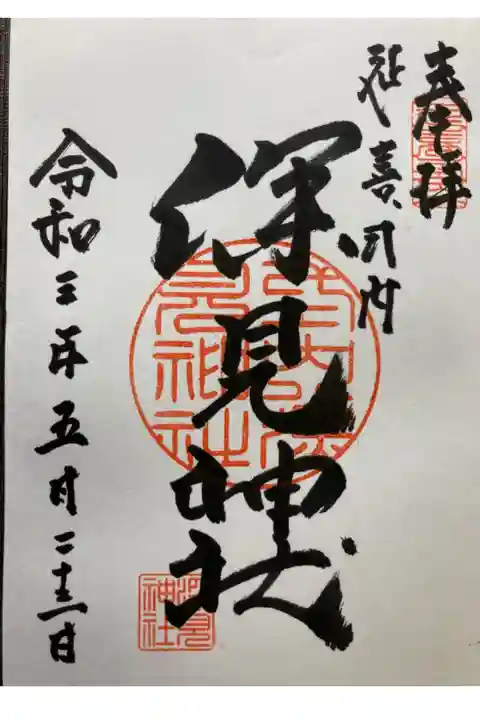 奉拝
延喜式内
深見神社
令和三年五月二十二日
式内深見神社
深見神社